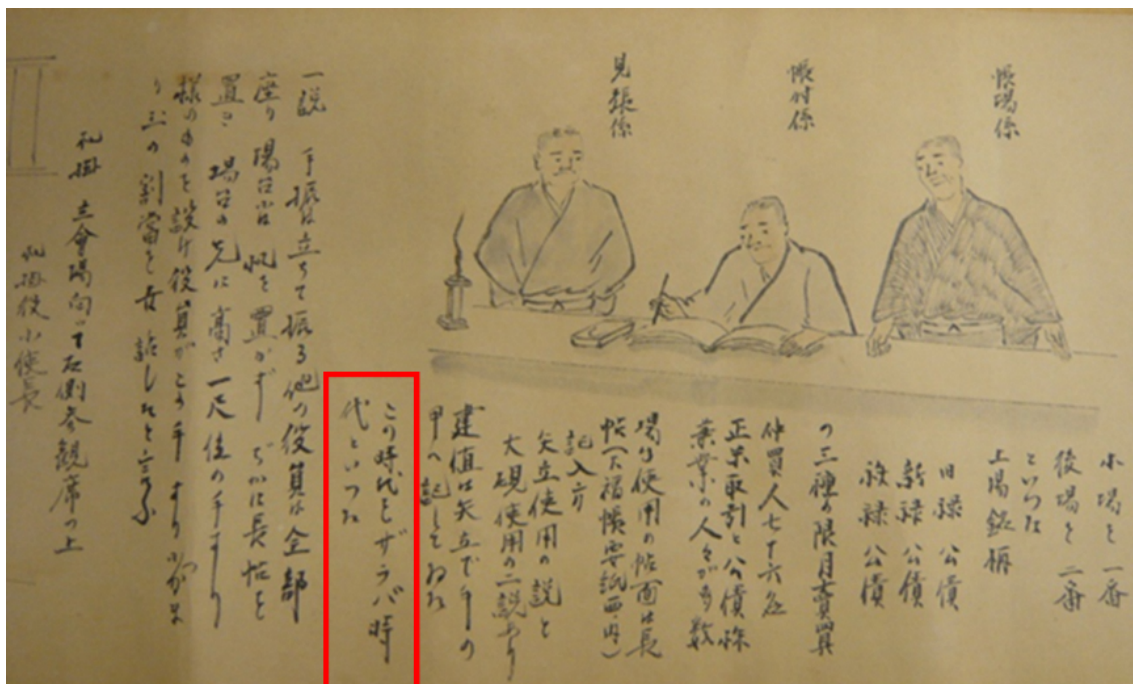 帳場係
帳付係
見張係
場を一番
後場を二番
といつた
上場銘柄
旧禄公債
新禄公債
秩禄公債
の三種の限月売買
仲買人七十六名
正米取引と公債株
兼業の人々が多数
場の使用の帖面は長
帖(大福帳要紙西ノ内)
記入方
矢立使用の説と
大硯使用の二説あり
建値は矢立で手の
甲へ記してゐた
この時代をザラバ時
代といつた
一説 手振は立ちて振る他の役員は全部
座り 場台には机を置かず ぢかに長帖を
置き 場台の先に高さ一尺位の手すり
様のものを設け役員がこの手すり
り玉の割當を世話したと言ふ
札掛 立會場向って左側参観席の上
札掛役小使長